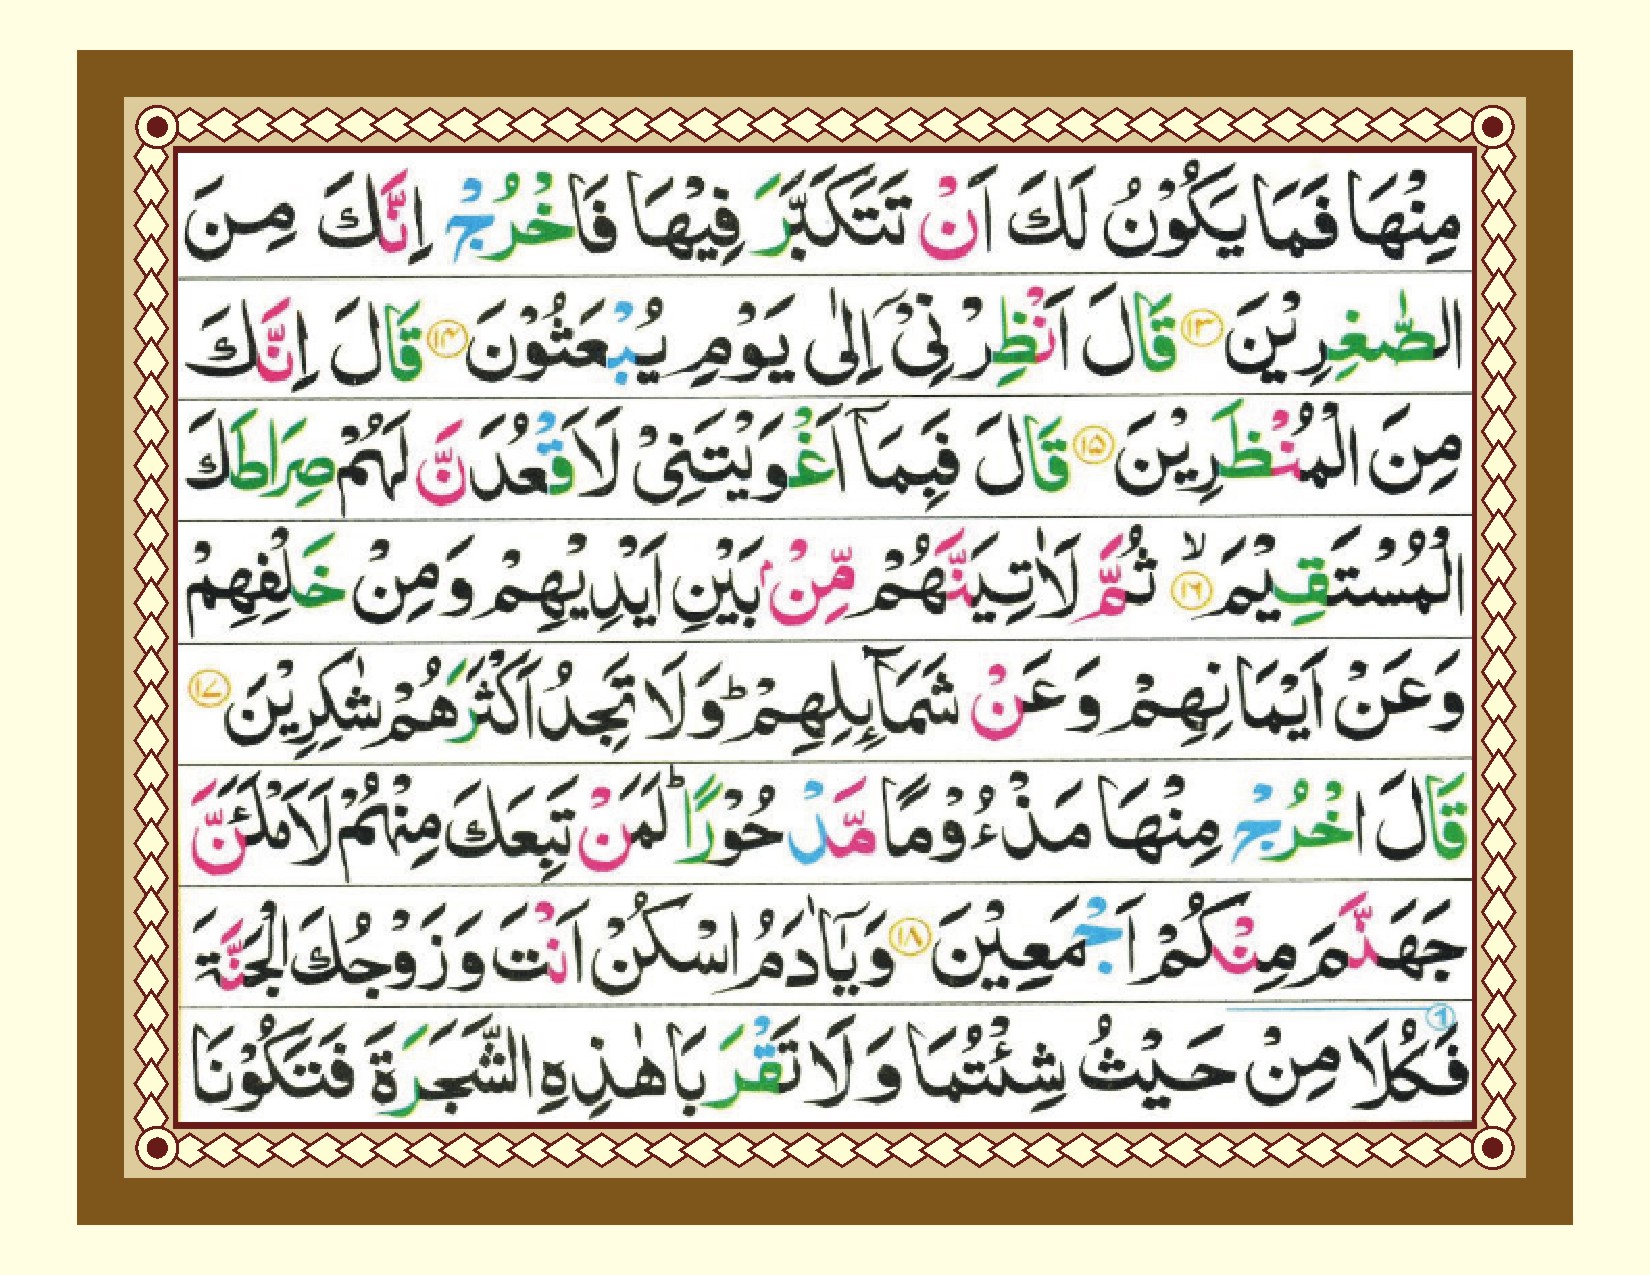 مِنْهَا فَمَا يَكُوْنُ لَكَ اَنْ تَتَكَبَّرَ فِيْهَا فَاخْرُجْ اِنَّكَ مِنَ
الصّٰغِرِيْنَ ۝۱۳ قَالَ اَنْظِرْ نِىْۤ اِلٰى يَوْمِ يُبْعَثُوْنَ ۝۱۴ قَالَ اِنَّكَ
مِنَ الْمُنْظَرِيْنَ ۝۱۵ قَالَ فَبِمَاۤ اَغْوَيْتَنِىْ لَاَقْعُدَنَّ لَهُمْ صِرَاطَكَ
الْمُسْتَقِيْمَ ۙ۝۱۶ ثُمَّ لَاٰتِيَنَّهُمْ مِّنْۢ بَيْنِ اَيْدِيْهِمْ وَمِنْ خَلْفِهِمْ
وَعَنْ اَيْمَانِهِمْ وَعَنْ شَمَآئِلِهِمْ ؕ وَلَا تَجِدُ اَكْثَرَهُمْ شٰكِرِيْنَ ۝۱۷
قَالَ اخْرُجْ مِنْهَا مَذْءُوْمًا مَّدْحُوْرًا ؕ لَمَنْ تَبِعَكَ مِنْهُمْ لَاَمْلَئَنَّ
جَهَنَّمَ مِنْكُمْ اَجْمَعِيْنَ ۝۱۸ وَيٰۤاٰدَمُ اسْكُنْ اَنْتَ وَزَوْجُكَ الْجَنَّةَ
فَكُلَا مِنْ حَيْثُ شِئْتُمَا وَلَا تَقْرَبَا هٰذِهِ الشَّجَرَةَ فَتَكُوْنَا